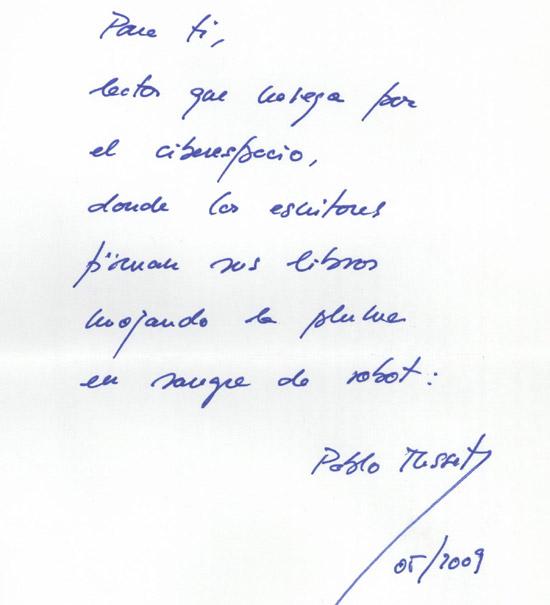 Para ti,
lector que navega por
el ciberespacio,
donde los escritores
firman sus libros
mojando la pluma
en sangre de robot:
Pablo Tusset
05/2009